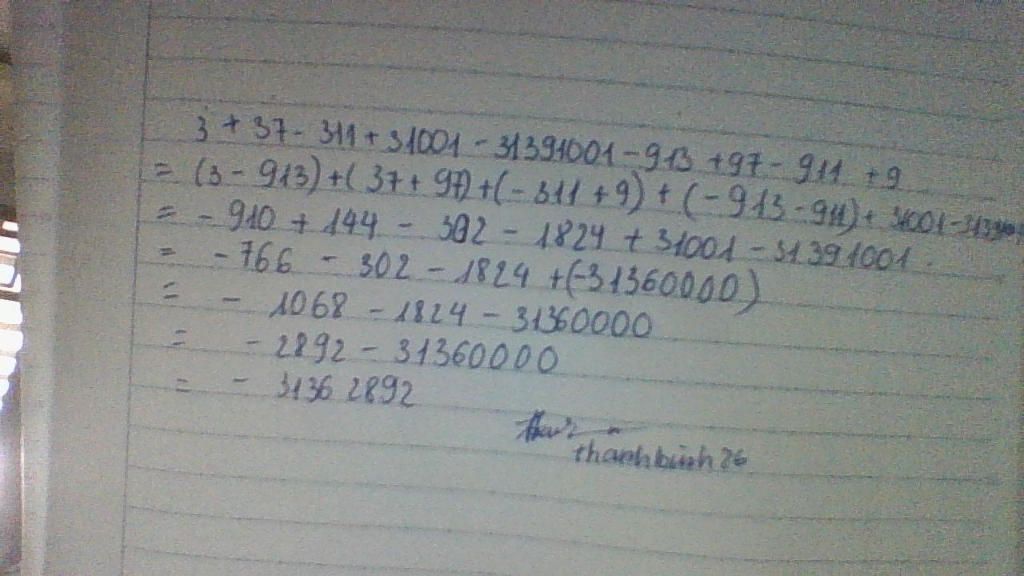 3 + 37 - 311 + 31001 - 31391001 - 913 + 97 - 911 + 9
= (3 - 913) + (37 + 97) + (- 311 + 9) + (- 913 - 911) + 31001 -
= - 910 + 144 - 302 - 1824 + 31001 - 31391001.
= - 766 - 302 - 1824 + (-31360000)
= - 1068 - 1824 - 31360000
= - 2892 - 31360000
= - 31362892
thanhbinh26